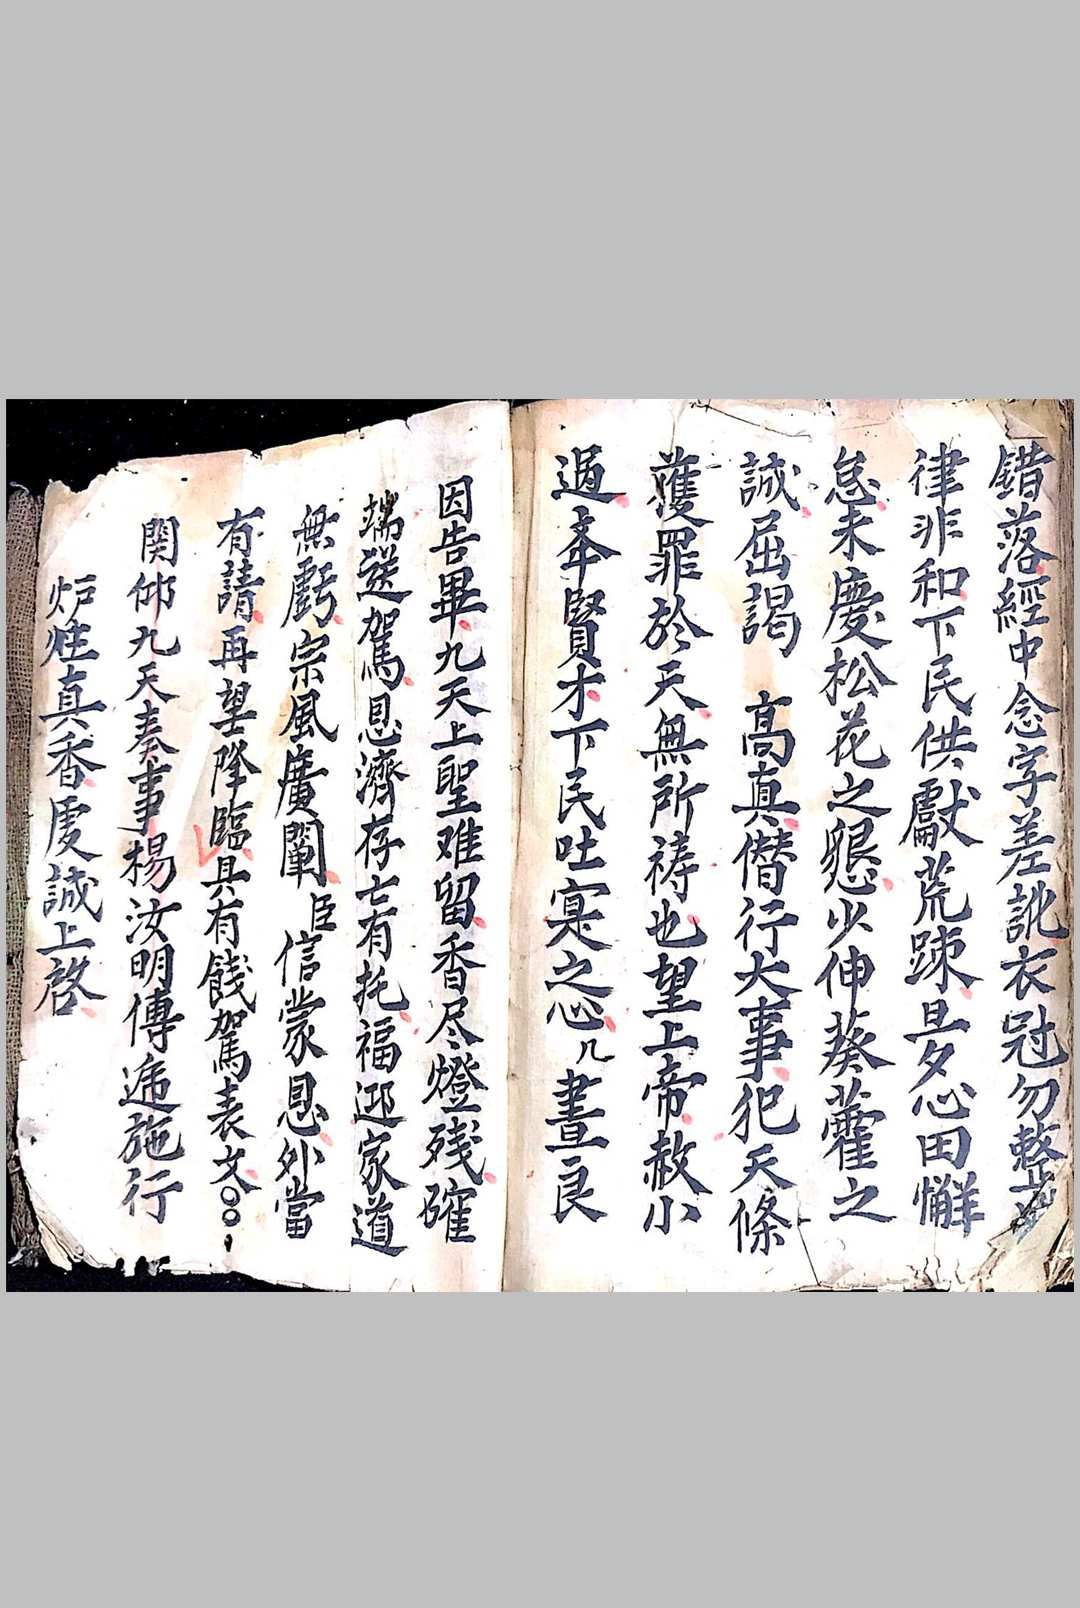 錯落經中念字差訛衣冠勿整
律非和下民供献荒踈旦夕心田懈
怠未慶松花之懇少伸葵藿之
誠屈謁　高真僭行大事犯天條
獲罪於天無所祷也望上帝赦小
過奉賢才下民吐寔之心凡晝良
因告畢九天上聖难留香尽燈残確
端送駕恩濟存亡有托福迎家道
無虧宗風廣闡臣信蒙恩外當
有請再望降臨具有餞駕表文
関仰九天奏事楊汝明傳逓施行
炉炷真香虔誠上啓